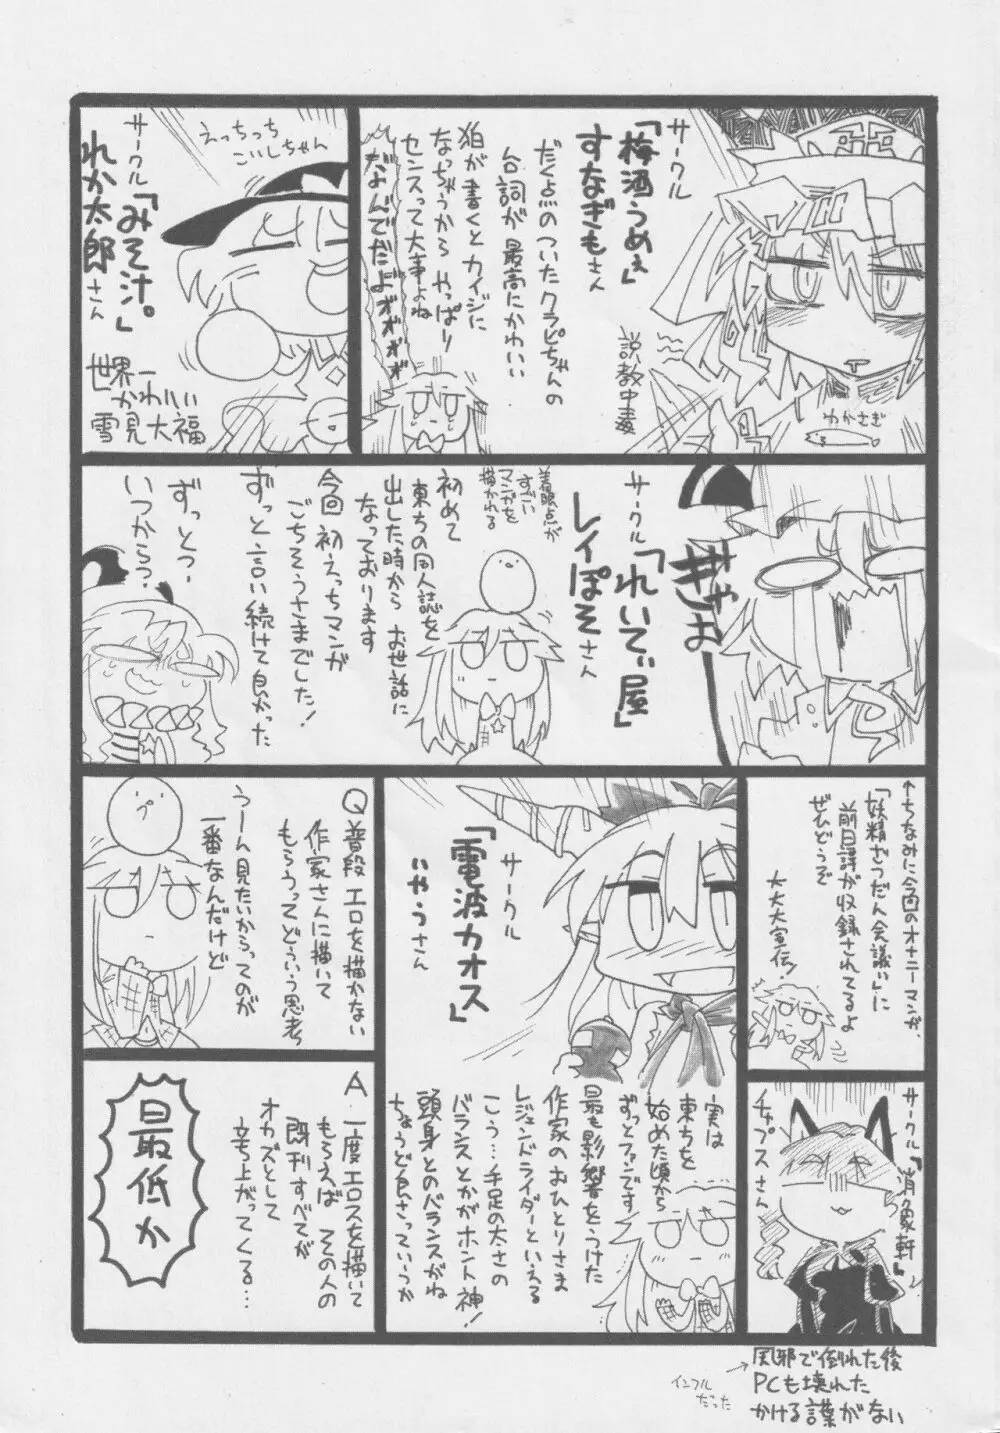 サークル
「梅酒うめぇ」
すなぎもさん
だく点のついたクラピちゃんの
台詞が最高にかわいい
狛が書くとカイジに
なっちゃうから やっぱり
センスって大事よね
だよんでだよォォォォ
説教中毒
わかさぎ
えっちっち
こいしちゃん
サークル
「みそ汁。」
れか太郎さん
世界一
かわいい
雪見大福
ぎゃお
サークル
「れいてぃ屋」
レイぽそさん
着眼点が
すごい
マンガを
描かれる
初めて
東方の同人誌を
出した時から お世話に
なっております
今回 初えっちマンガ
ごちそうさまでした!
ずっと言い続けて良かった
ずっとっ?
いつからっ?
↑ちなみに今回のオナニーマンガ
「妖精さつだん会議い」に
前日譚が収録されてるよ
ぜひどうぞ
大大大宣伝!
サークル
「電波カオス」
いやうさん
実は
東方を
始めた頃から
ずっとファンです
最も影響をうけた
作家のおひとりさま
レジェンドライダーといえる
こう…手足の太さの
バランスとかがホント神!
頭身とのバランスがね
ちょうど良さっていうか
Q 普段エロを描かない
作家さんに描いて
もらうってどういう思考
うーん見たいからってのが
一番なんだけど
A.一度エロスを描いて
もらえば その人の
既刊すべてが
オカズとして
立ち上がってくる…
最低か
サークル「消象軒」
チャプスさん
→風邪で倒れた後
PCも壊れた
かける言葉がない
インフル
だった